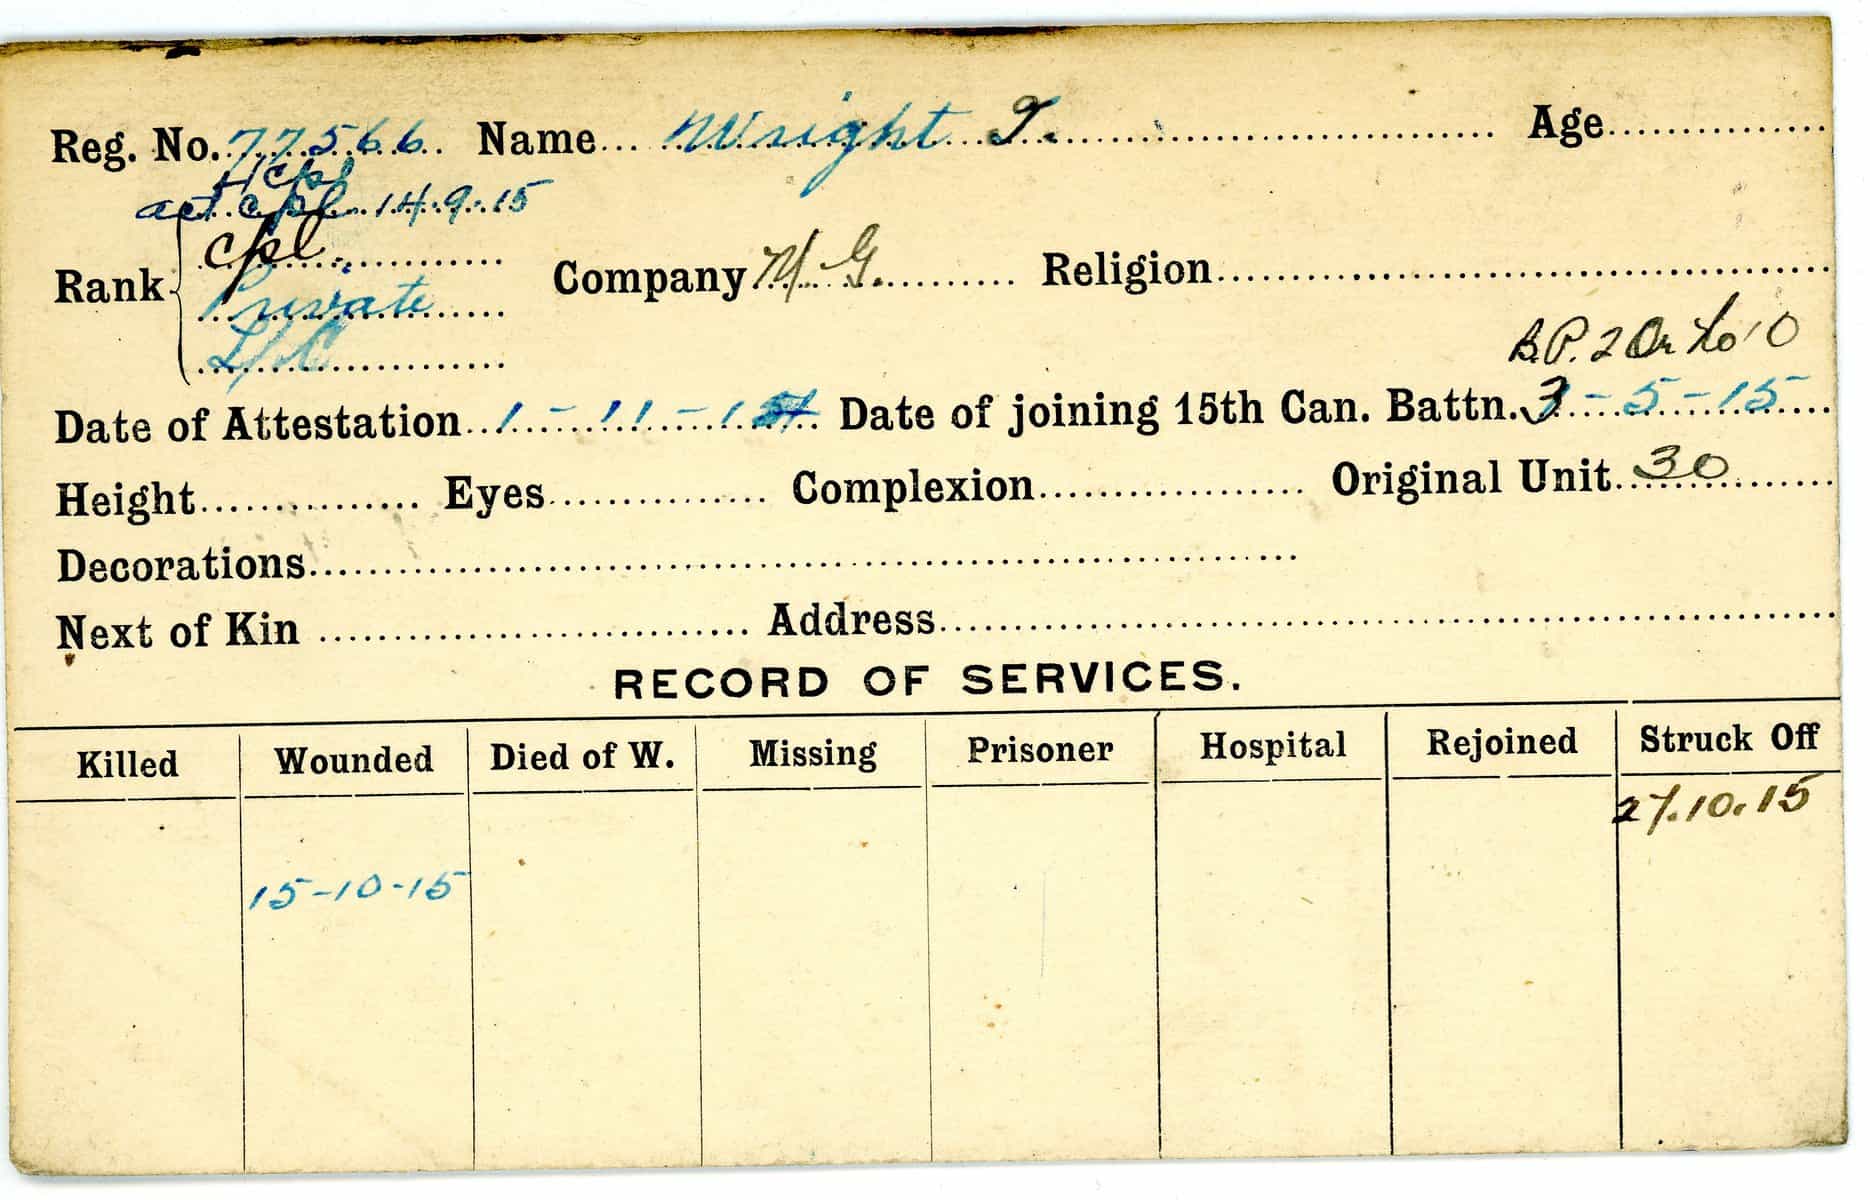 Reg. No. 77566 Name Wright T. Age
A/Cpl
act. cpl 14.9.15
Cpl.
Rank Private Company M.G. Religion
L/C
B.P. 2 Or No 10
Date of Attestation 1-11-14 Date of joining 15th Can. Battn. 3-5-15
Height Eyes Complexion Original Unit 30
Decorations
Next of Kin Address
RECORD OF SERVICES.
Killed Wounded Died of W. Missing Prisoner Hospital Rejoined Struck Off
27.10.15
15-10-15